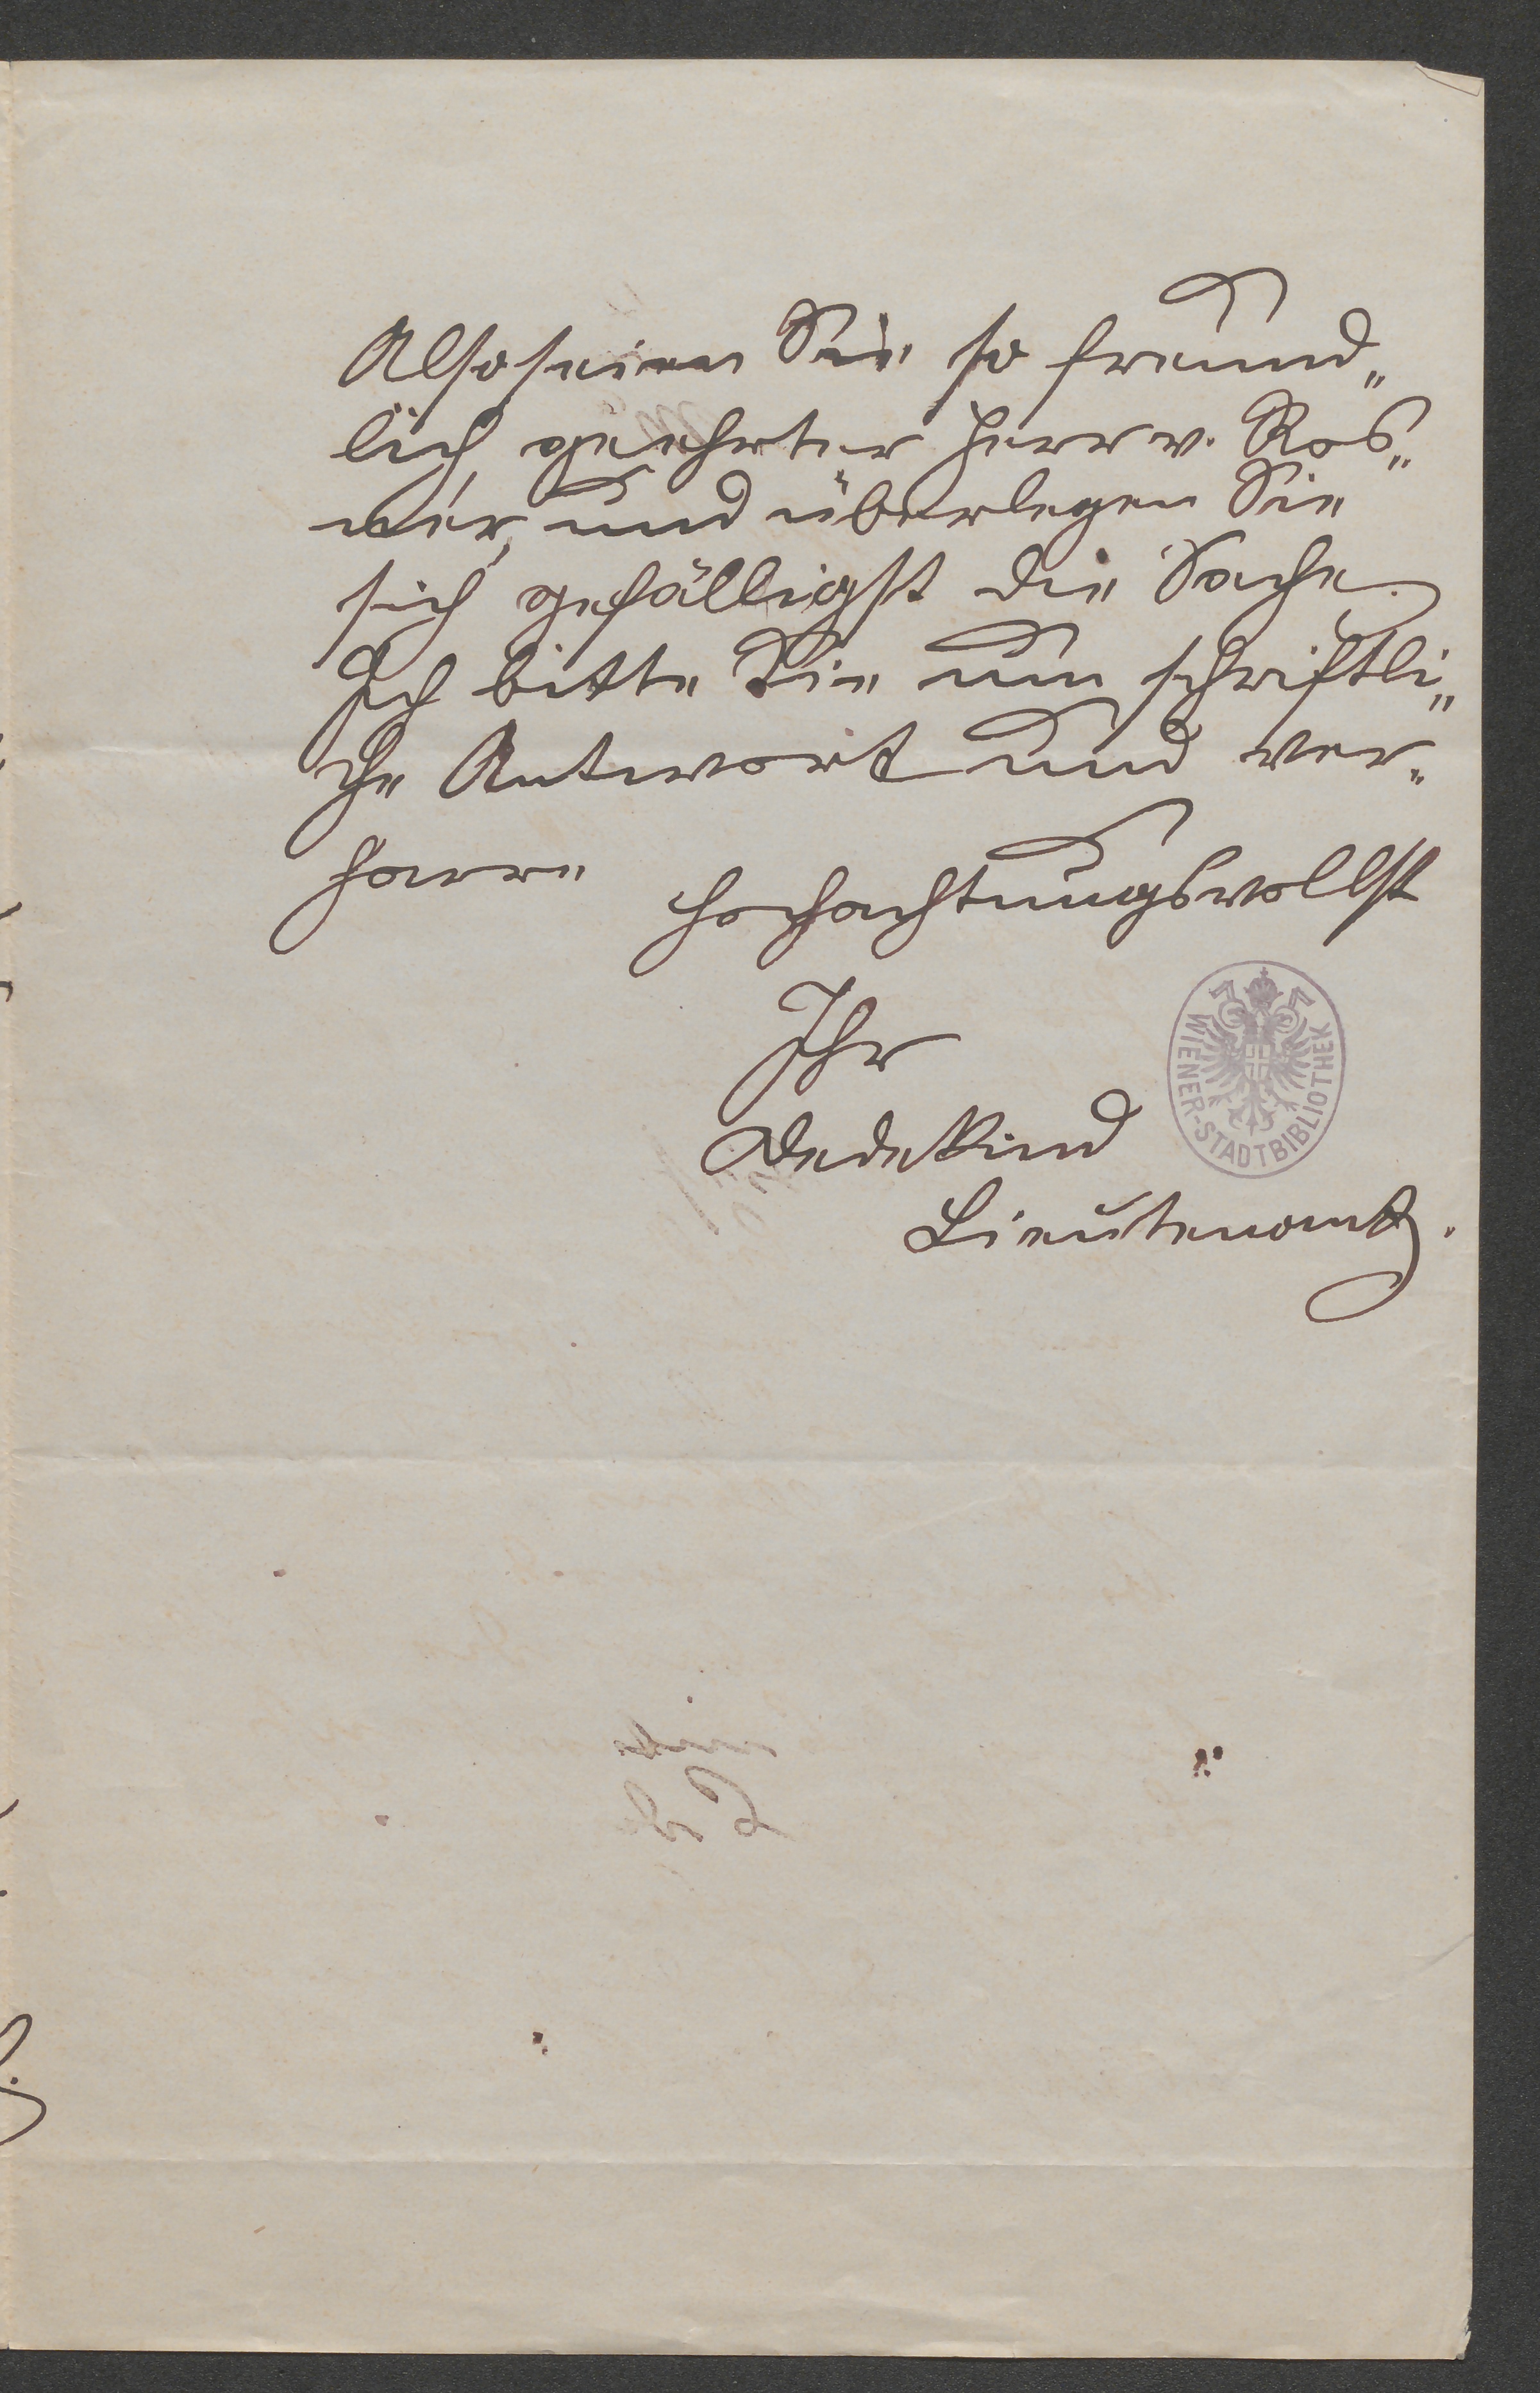 Also seien Sie so freund„
lich geehrter Herr v. Ros„
nér, und überlegen Sie
sich gefälligst die Sache.
Ich bitte Sie um schriftli„
che Antwort und ver„
harre
hochachtungsvollst
Ihr
Dedekind
Lieutenant.
WIENER-STADTBIBLIOTHEK